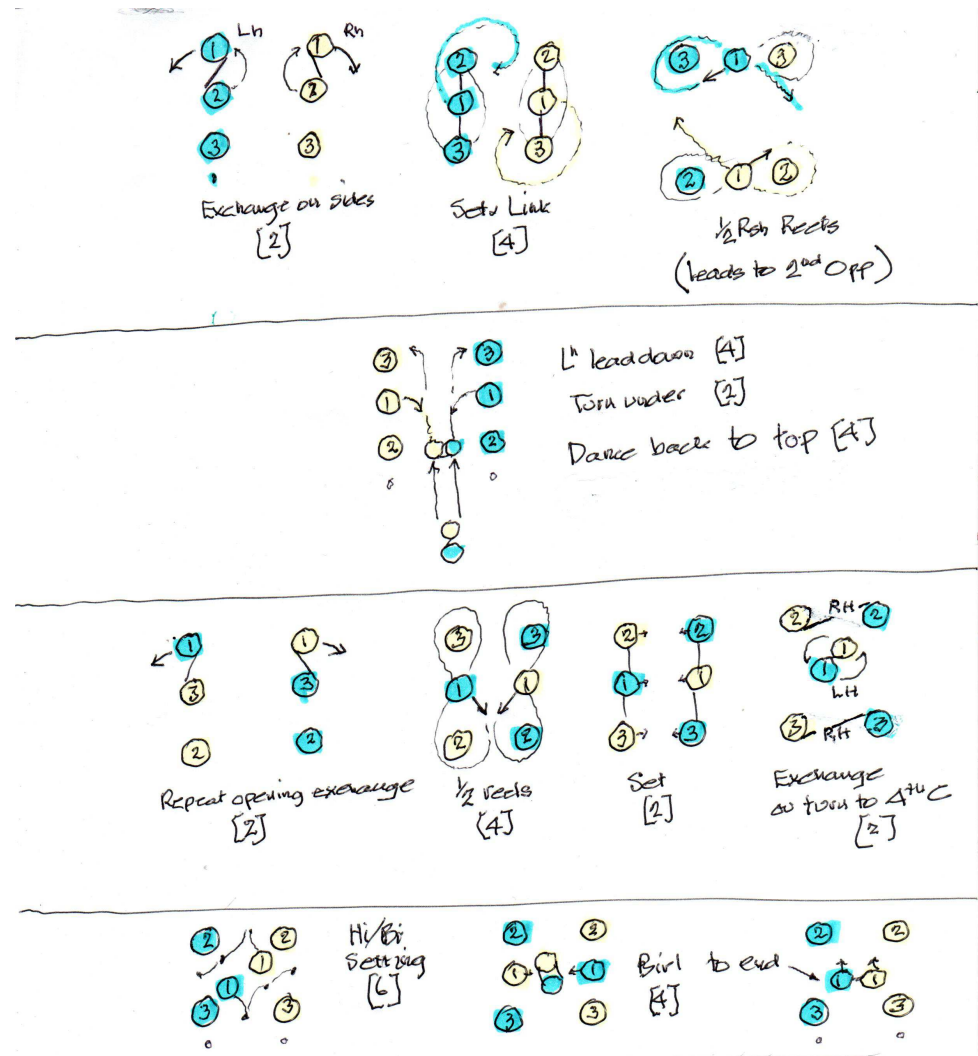 Lh Rh
1 1
2 2
3 3
Exchange on sides
[2]
2 2
1 1
3 3
Set & Link
[4]
3 1 3
2 1 2
½ Rsh Reels
(leads to 2nd Opp)
3 3
1 1
2 2
Lh lead down [4]
Turn under [2]
Dance back to top [4]
1 1
3 3
2 2
Repeat opening exchange
[2]
3 3
1 1
2 2
½ reels
[4]
2 2
1 1
3 3
Set
[2]
2 RH 2
1
1
LH
3 RH 3
Exchange
on turn to 4th C
[2]
2 2
1
1
3 3
Hi/Bi
Setting
[6]
2 2
1 1
3 3
Birl to end
[4]
2 2
1 1
3 3